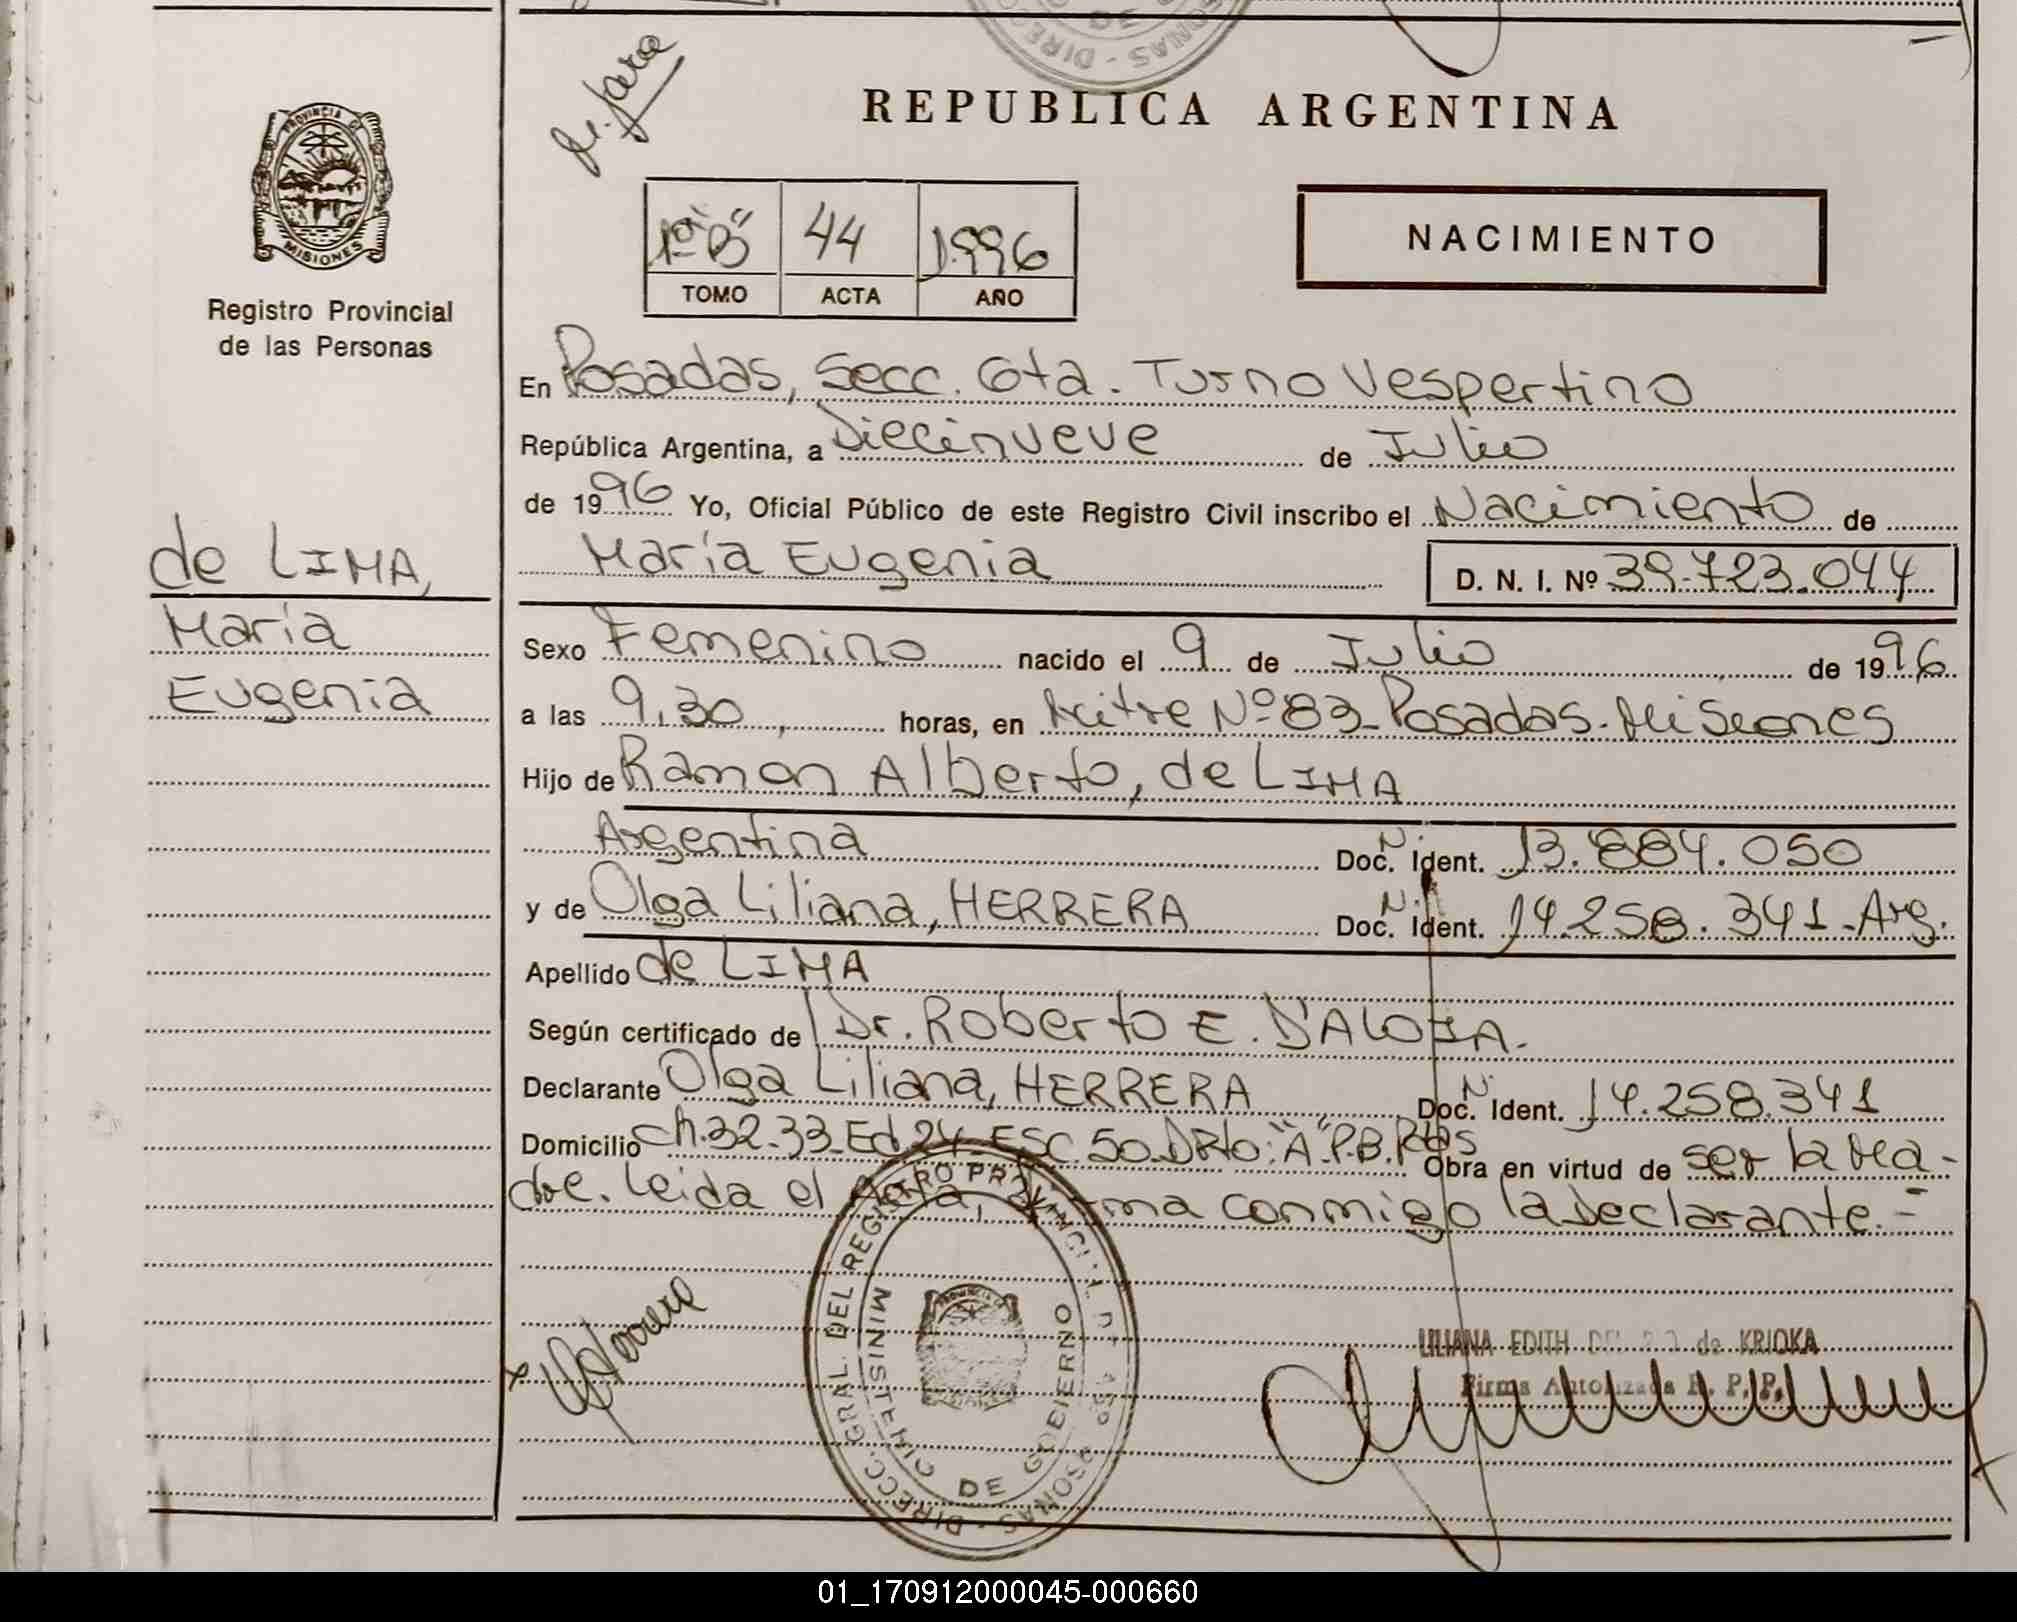 REPUBLICA ARGENTINA
PROVINCIA DE
MISIONES
Registro Provincial
de las Personas
1º "B" 44 1996
TOMO ACTA AÑO
NACIMIENTO
En Posadas, Secc. 6ta. Turno Vespertino
República Argentina, a Diecinueve de Julio
de 1996 Yo, Oficial Público de este Registro Civil inscribo el Nacimiento de
María Eugenia D. N. I. Nº 39.723.044
de LIMA,
María
Eugenia
Sexo Femenino nacido el 9 de Julio de 1996
a las 9,30 horas, en Mitre Nº 83 - Posadas - Misiones
Hijo de Ramon Alberto, de LIMA
Argentina Doc. Ident. 13.884.050
y de Olga Liliana, HERRERA Doc. Ident. 14.258.341 - Arg.
Apellido de LIMA
Según certificado de Dr. Roberto E. D'ALOIA.
Declarante Olga Liliana, HERRERA Doc. Ident. 14.258.341
Domicilio Ch. 32-33 Ed 24 - ESC. 50 Dpto: "A" P.B. Pdas
Obra en virtud de ser la Ma-
dre. Leida el Acta, firma conmigo la Declarante.-
DIRECC. GRAL. DEL REGISTRO PROVINCIAL DE LAS PERSONAS
MINISTERIO DE GOBIERNO
LILIANA EDITH de KRIOKA
Firma Autorizada R. P. P.
01_170912000045-000660